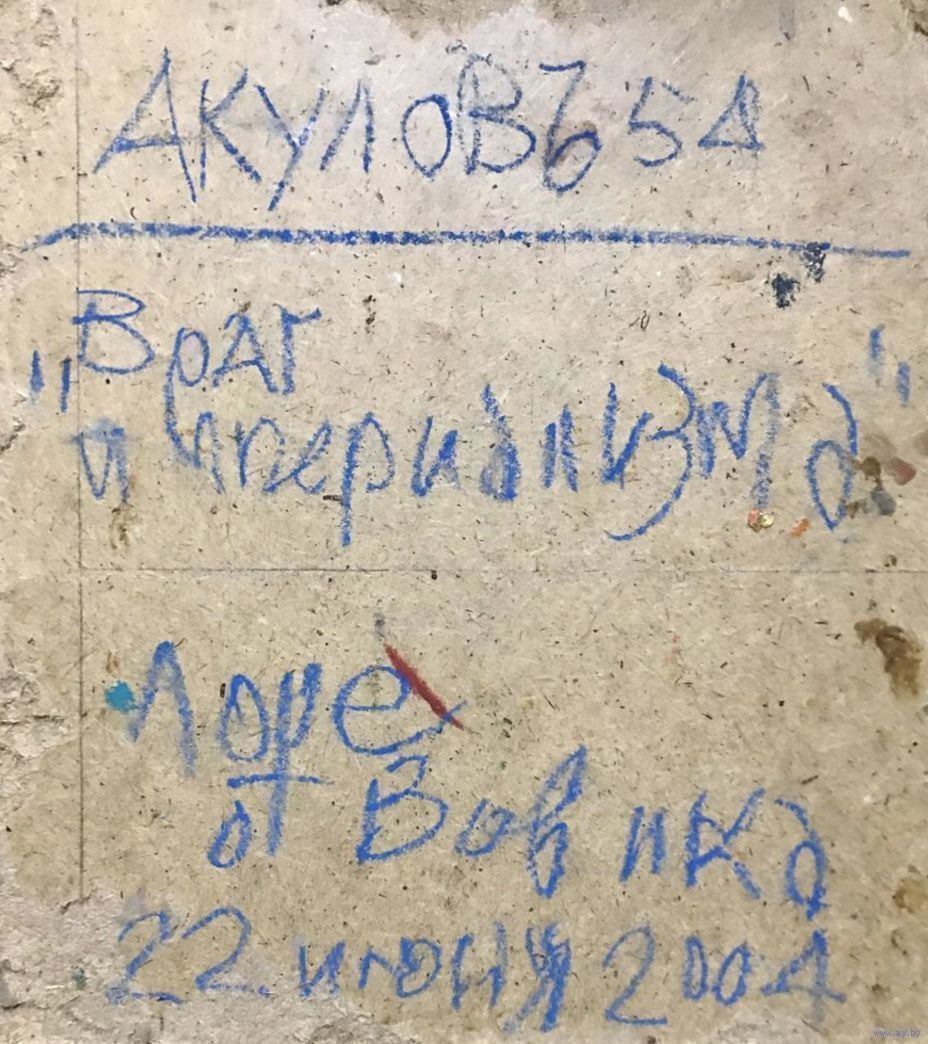 АКУЛОВ 654
"Враг
империализма"
Лоре
от Вовика
22 июня 2004
www.ay.by